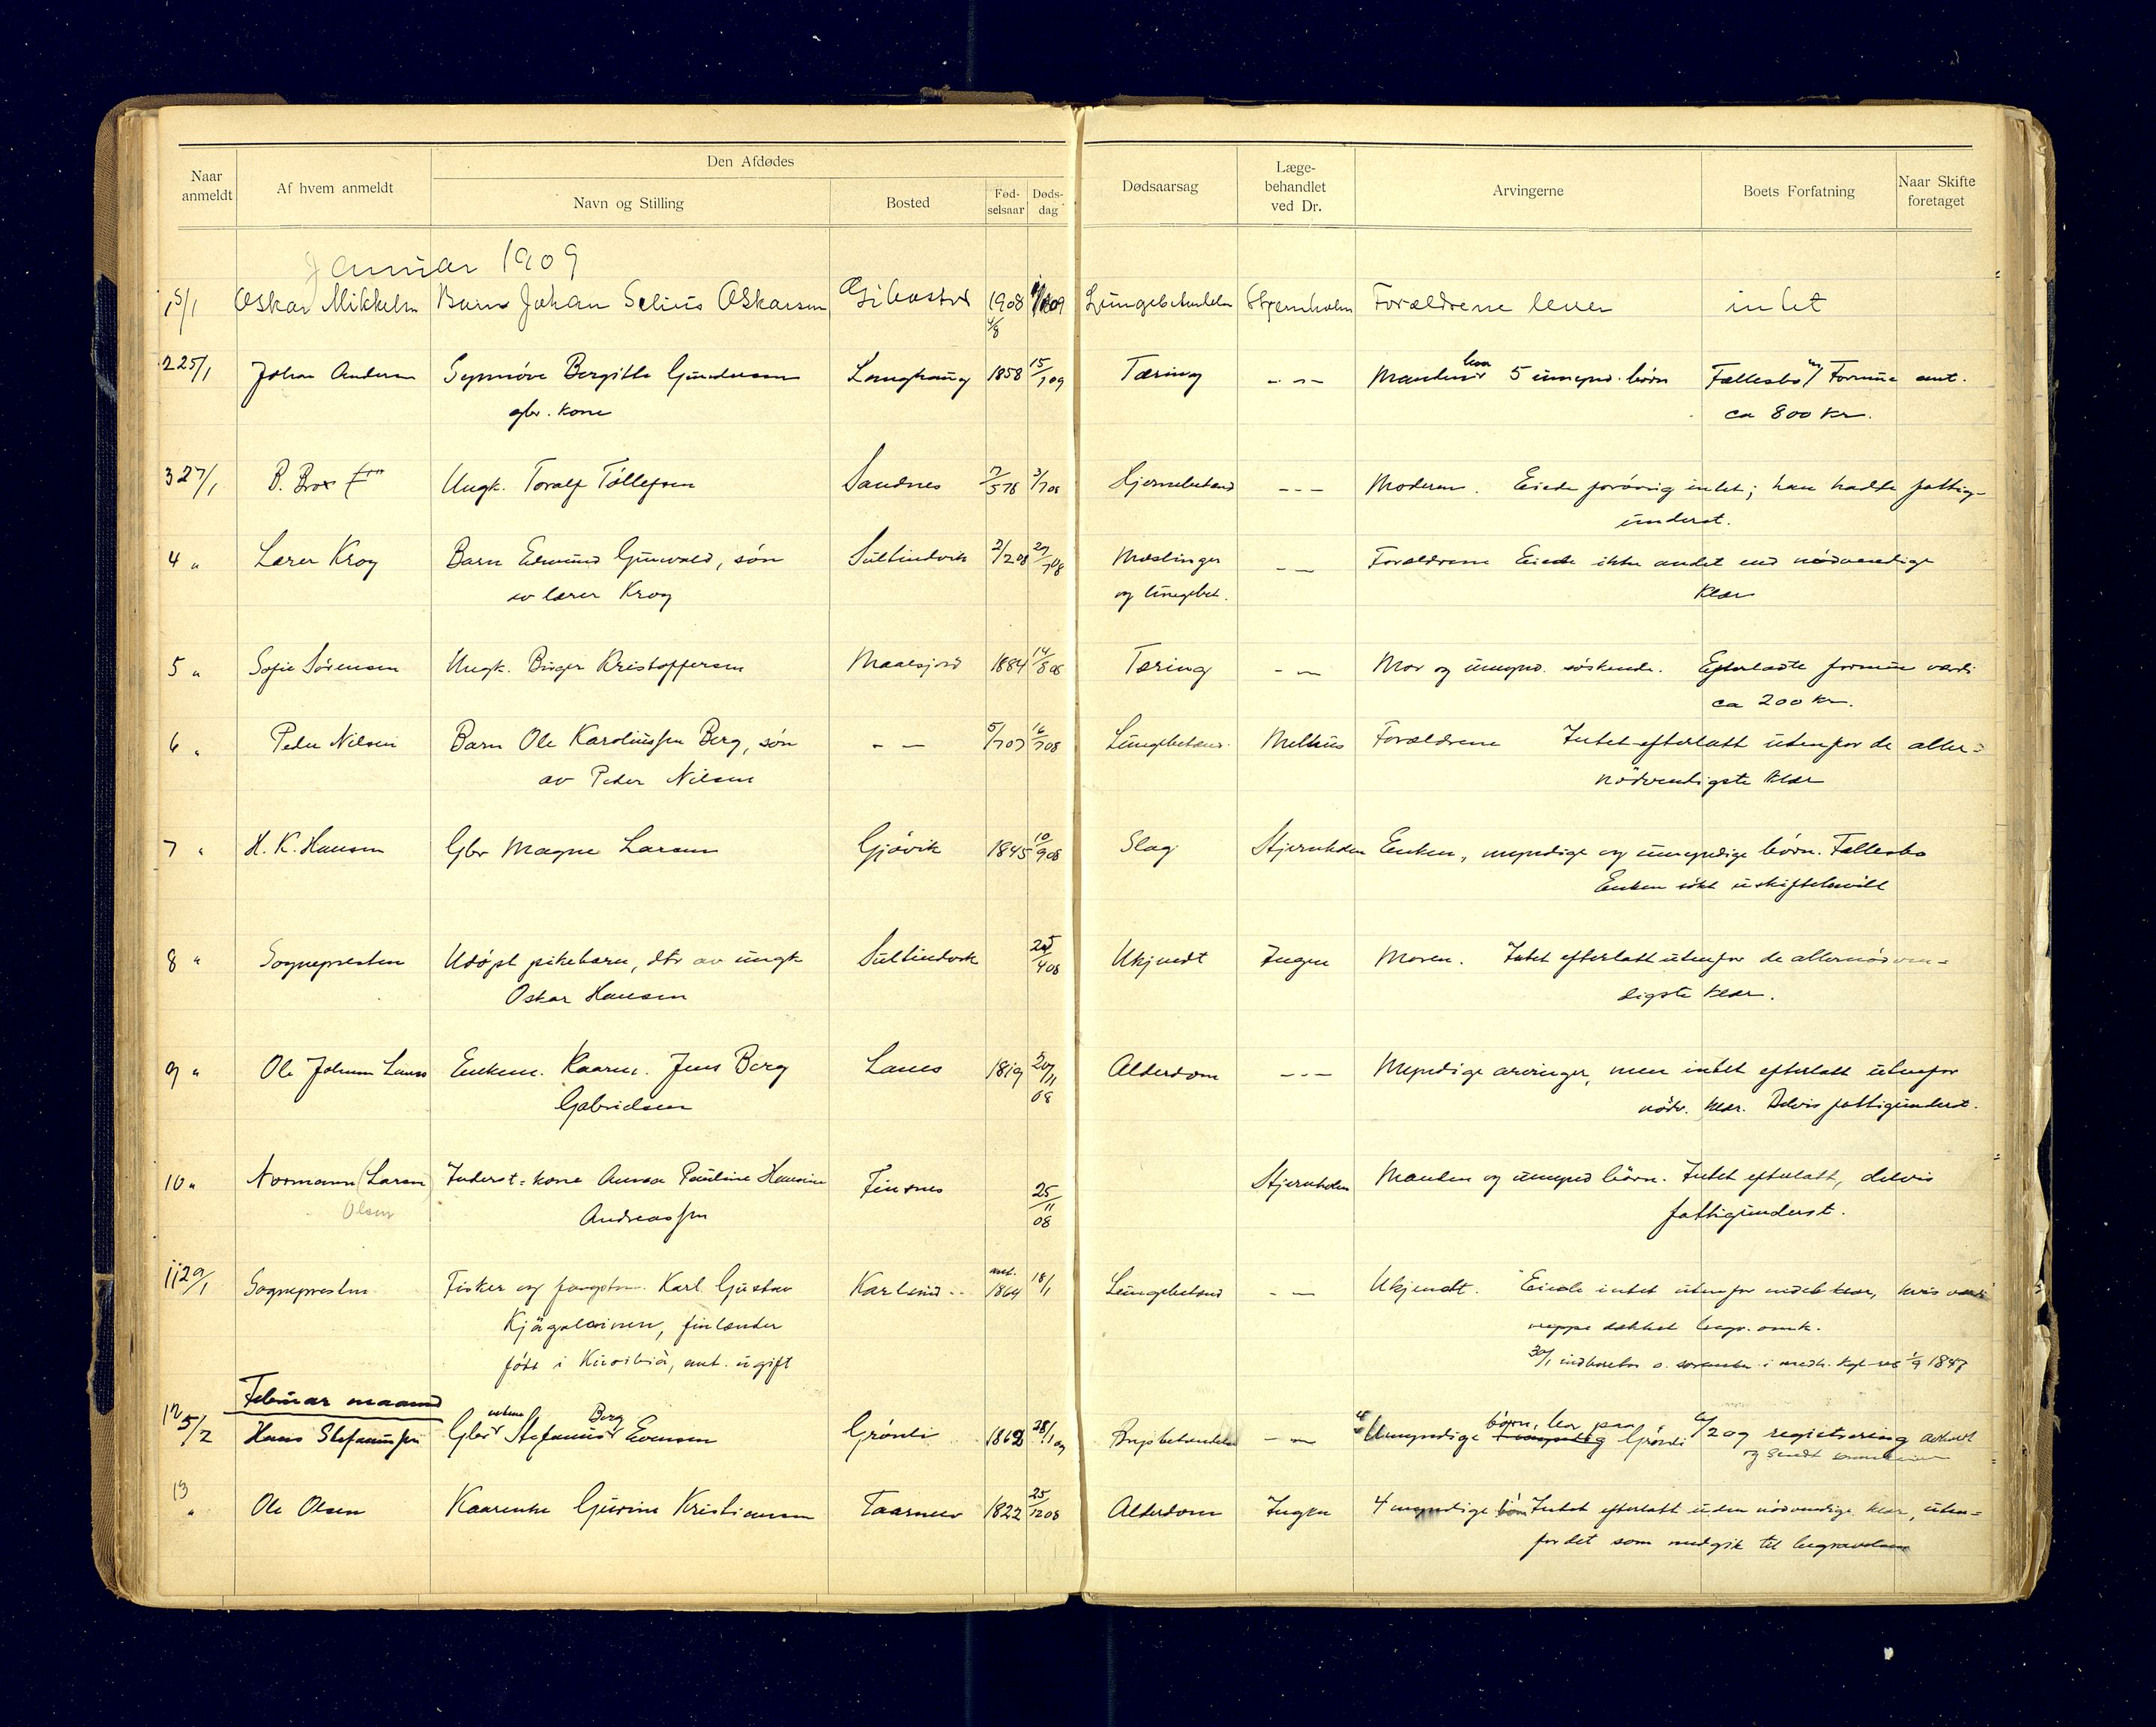 Naar anmeldt
Af hvem anmeldt
Den Afdødes
Navn og Stilling
Bosted
Fød-selsaar
Døds-dag
Dødsaarsag
Læge-behandlet ved Dr.
Arvingerne
Boets Forfatning
Naar Skifte foretaget
Januar 1909
1 5/1 Oskar Mikkelsen Barn Johan Selius Oskarsen Gibostad 1908 Lungebetændelse Stjernholm Forældrene lever intet
2 25/1 Johan Andersen Synnöve Bergitte Gundersen Langhaug 1858 15/1 09 Tæring - - - Manden har 5 umynd. börn Fællesbo Formue ant.
gbr. kone ca 800 kr.
3 27/1 B. Brox Ungk. Toralf Tollefsen Sandnes 7/5 76 3/7 08 Hjernebetænd - - - Moderen. Eiede forövrig intet; han hadde fattig-
underst.
4 " Lærer Krog Barn Edmund Gunvald, sön Sultindvik 2/2 08 27/7 08 Mæslinger - - Forældrene Eiede ikke andet end nödvendige
av lærer Krog og lungebet. klær
5 " Sofie Sörensen Ungk. Birger Kristoffersen Maalsjord 1884 14/8 08 Tæring - - Mor og umynd. söskende. Efterladte formue værdi
ca 200 kr.
6 " Peder Nilsen Barn Ole Karoliussen Berg, sön - - 5/7 07 16/7 08 Lungebetænd. Melhus Forældrene Intet efterlatt utenfor de aller=
av Peder Nilsen nödvendigste klær
7 " H. K. Hansen Gbr Magne Larsen Gjövik 1845 10/9 08 Slag Stjernholm Enken, myndige og umyndige börn. Fællesbo
Enken sökt uskiftebevill
8 " Sognepresten Udöpt pikebarn, dtr av ungk Sultindvik 25/4 08 Ukjendt Ingen Moren. Intet efterlatt utenfor de allernödven=
Oskar Hansen digste klær.
9 " Ole Johan Lanes Enkem. Kaarm. Jens Berg Lanes 1819 20/11 08 Alderdom - - - Myndige arvinger, men intet efterlatt utenfor
Gabrielsen nödv. klær. Delvis fattigunderst.
10 " Normann (Larsen Inderst=kone Anna Pauline Hansine Finsnes 25/11 08 Stjernholm Manden og umynd börn. Intet efterlatt, delvis
Olsen Andreassen fattigunderst.
11 29/1 Sognepresten Fisker og fangstm. Karl Gustav Karlsund ant. 1864 18/1 Lungebetænd - - Ukjendt. Eiede intet utenfor endel klær, hvis værdi
finlænder neppe dækket begr. omk.
födt i ant. ugift 1847
Februar maaned
12 5/2 Hans Stefanussen Gbr Stefanus Berg Evensen Grönli 1862 28/1 09 Brystbetændelse - - Umyndige börn, bor paa Grönli registrering avholdt
og sendt
13 " Ole Olsen Kaarenke Gurine Kristiansen Taarnelv 1822 25/12 08 Alderdom Ingen 4 myndige börn Intet efterlatt uden nödvendige klær, uten=
for det som medgik til begravelsen